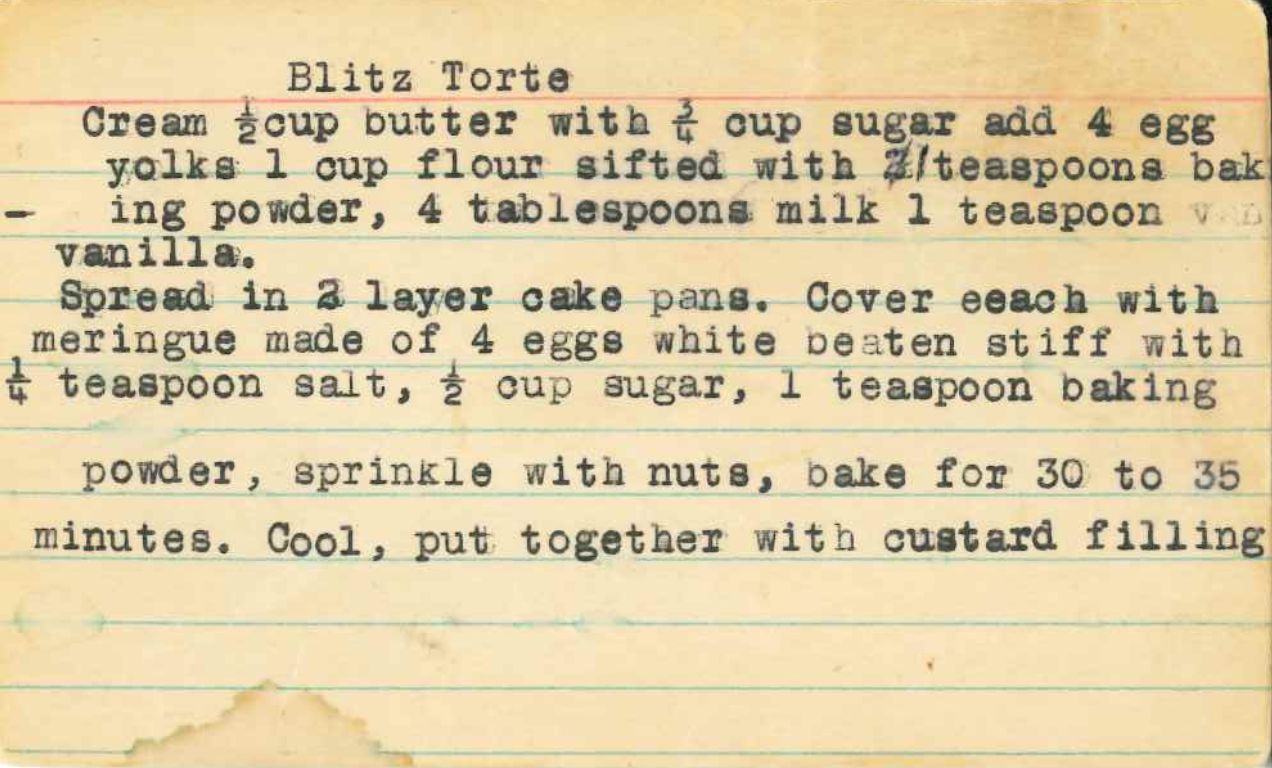 Blitz Torte
Cream ½cup butter with ¾ cup sugar add 4 egg
yolks 1 cup flour sifted with 1 teaspoons bak
- ing powder, 4 tablespoons milk 1 teaspoon van
vanilla.
Spread in 2 layer cake pans. Cover eeach with
meringue made of 4 eggs white beaten stiff with
¼ teaspoon salt, ½ cup sugar, 1 teaspoon baking
powder, sprinkle with nuts, bake for 30 to 35
minutes. Cool, put together with custard filling